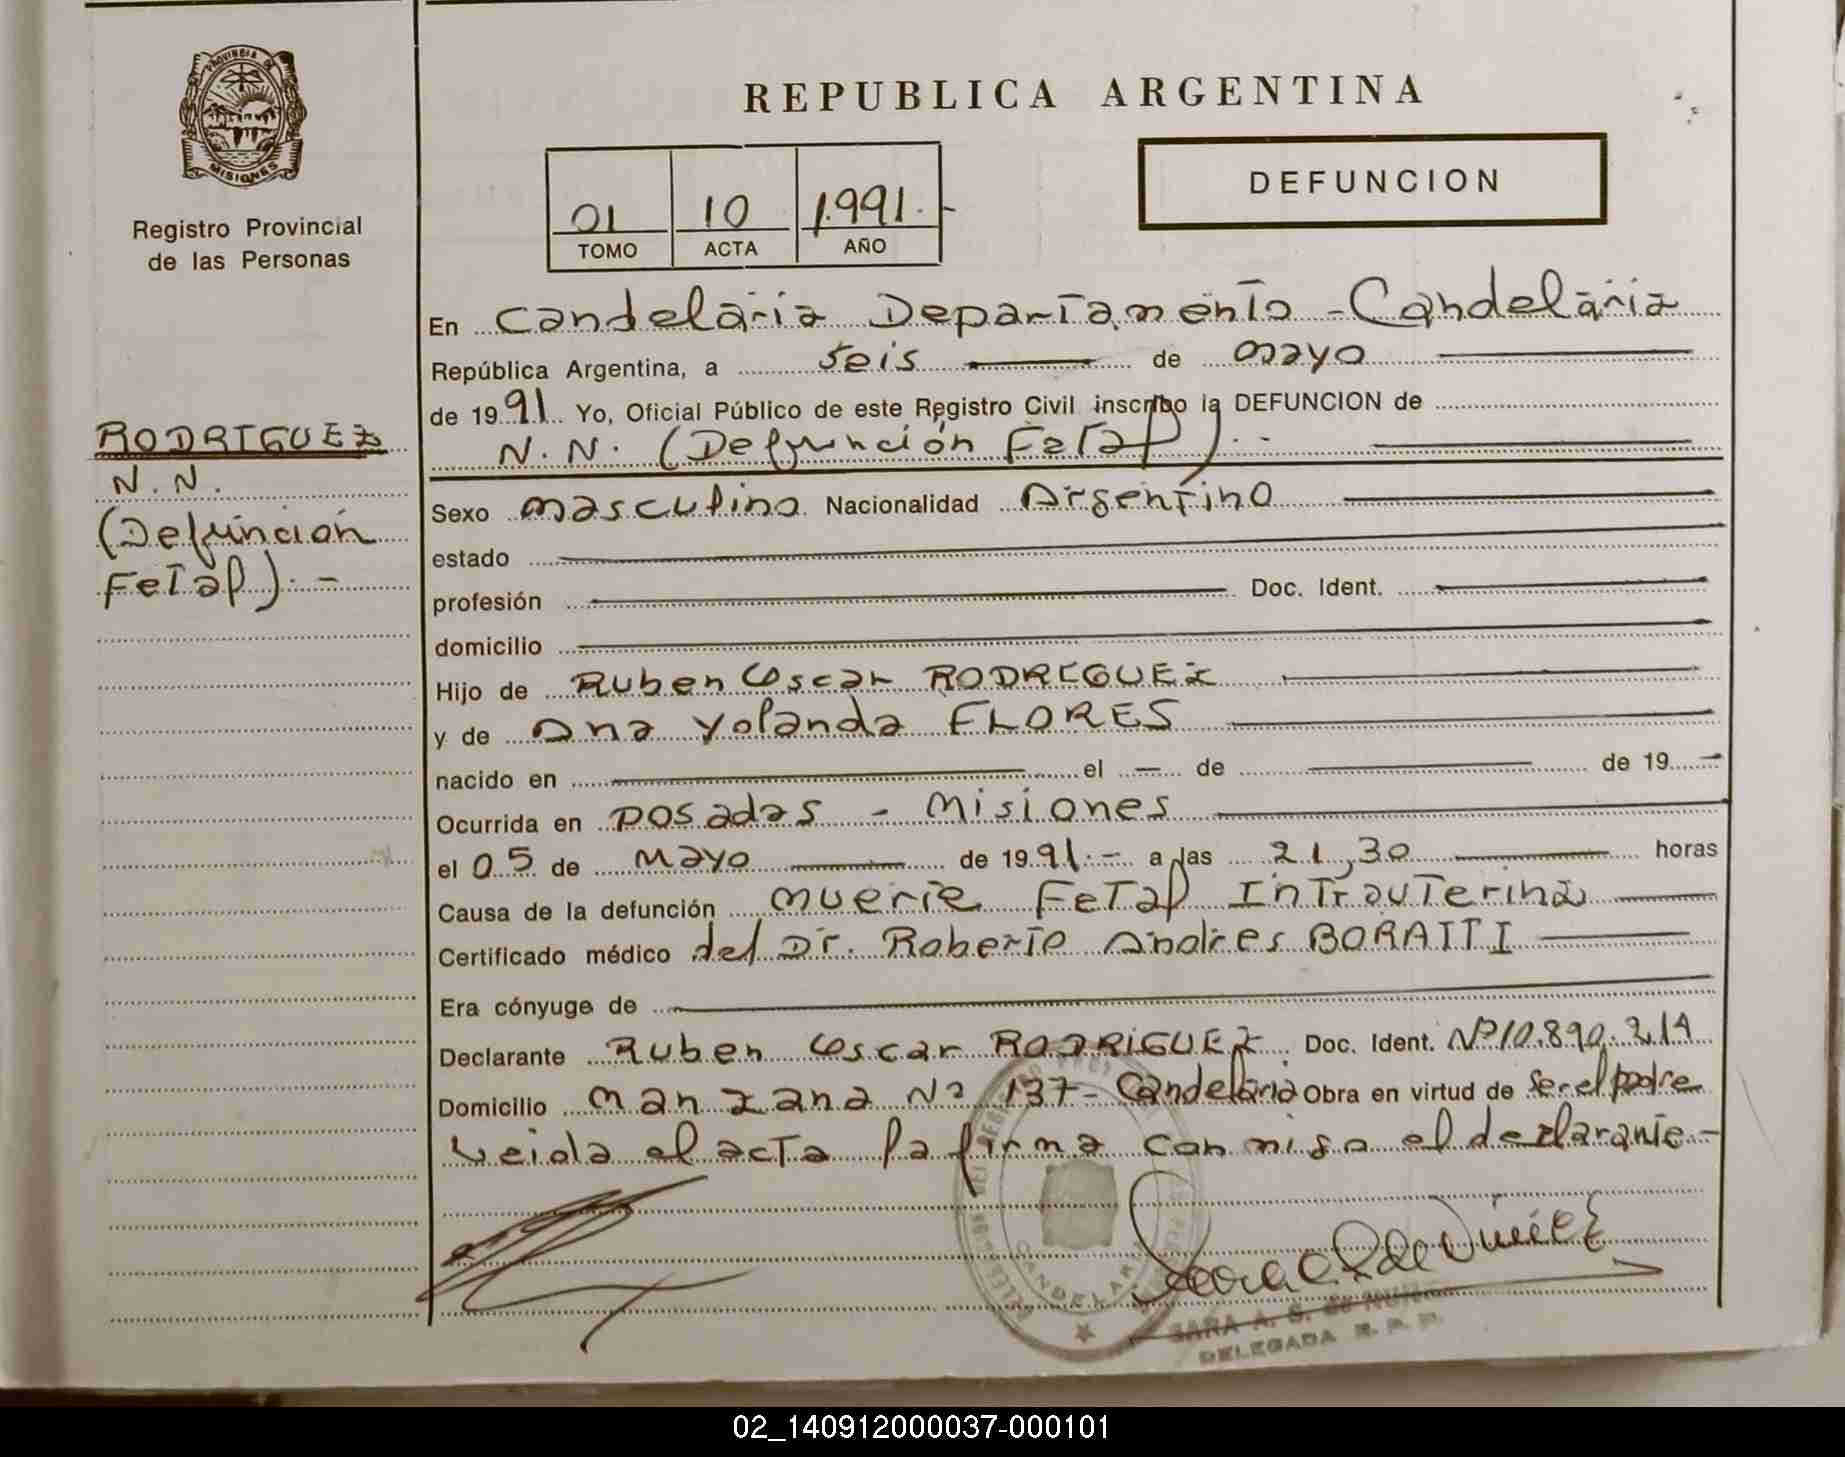 PROVINCIA DE
MISIONES
Registro Provincial
de las Personas
RODRIGUEZ
N. N.
(Defunción
Fetal).-
REPUBLICA ARGENTINA
DEFUNCION
01 10 1.991.-
TOMO ACTA AÑO
En Candelaria Departamento - Candelaria
República Argentina, a seis de mayo
de 1991. Yo, Oficial Público de este Registro Civil inscribo la DEFUNCION de
N. N. (Defunción Fetal).-
Sexo masculino Nacionalidad Argentino
estado
profesión Doc. Ident.
domicilio
Hijo de Ruben Oscar RODRIGUEZ
y de Ana Yolanda FLORES
nacido en el - de de 19 -
Ocurrida en Posadas - Misiones
el 05 de Mayo de 1991.- a las 21,30 horas
Causa de la defunción muerte Fetal Intrauterina
Certificado médico del Dr. Roberto Andres BORATTI
Era cónyuge de
Declarante Ruben Oscar RODRIGUEZ Doc. Ident. Nº 10.890.214
Domicilio Manzana Nº 137- Candelaria Obra en virtud de Ser el padre
Leida el acta la firma conmigo el declarante.-
CANDELARIA
SARA A. S. de NUÑEZ
DELEGADA R. P. P.
02_140912000037-000101